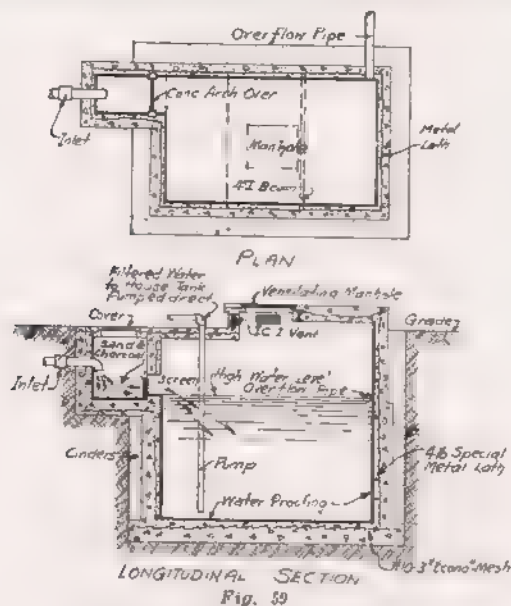 Overflow Pipe
Conc Arch Over
Inlet
Manhole
4" I Beam
Metal
Lath
PLAN
Filtered Water
to House Tank
Pumped direct
Ventilating Manhole
Cover
C I Vent
Grade
Sand &
charcoal
Screen
High Water Level
Overflow Pipe
Inlet
Cinders
Pump
4 lb Special
Metal Lath
Water Proofing
#10-3" "Econo" Mesh
LONGITUDINAL SECTION
Fig. 59